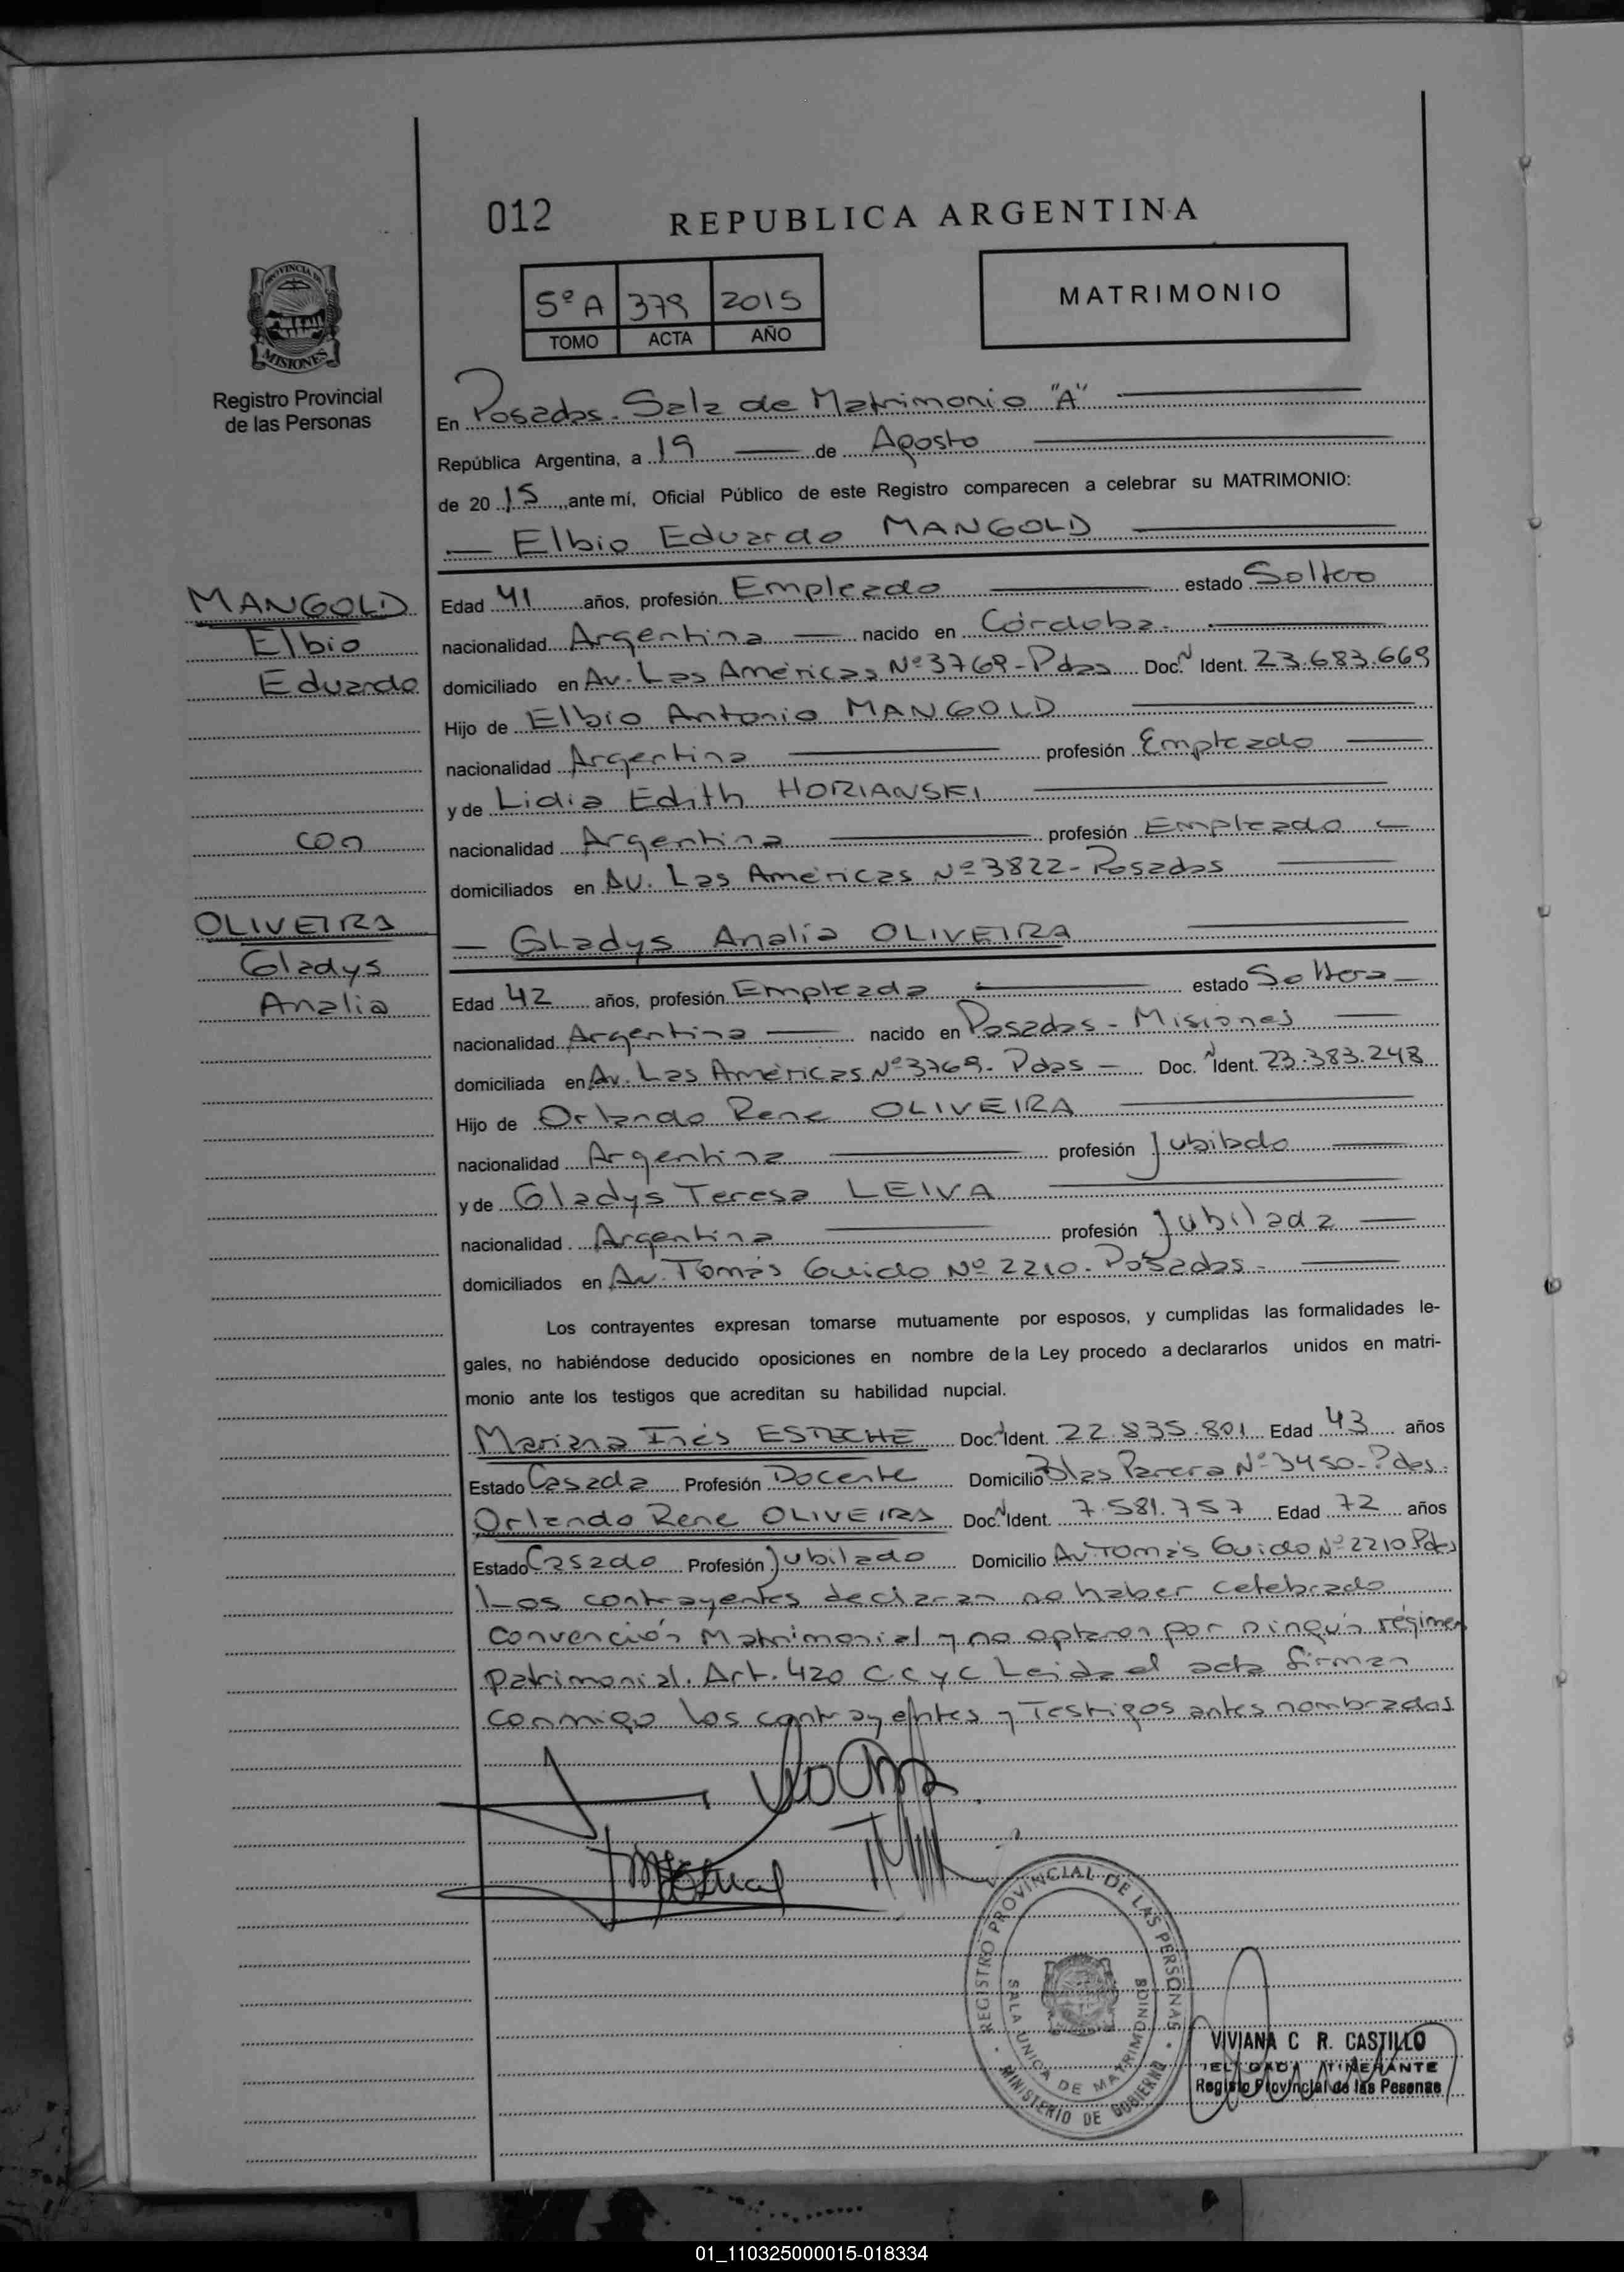 012
REPUBLICA ARGENTINA
PROVINCIA DE
MISIONES
Registro Provincial
de las Personas
5º A 379 2015
TOMO ACTA AÑO
MATRIMONIO
En Posadas. Sala de Matrimonio "A"
República Argentina, a 19 de Agosto
de 20 15, ante mí, Oficial Público de este Registro comparecen a celebrar su MATRIMONIO:
Elbio Eduardo MANGOLD
MANGOLD
Elbio
Eduardo
con
OLIVEIRA
Gladys
Analia
Edad 41 años, profesión Empleado estado Soltero
nacionalidad Argentina nacido en Córdoba.
domiciliado en Av. Las Américas Nº 3769 - Pdas Doc. N Ident. 23.683.669
Hijo de Elbio Antonio MANGOLD
nacionalidad Argentina profesión Empleado
y de Lidia Edith HORIANSKI
nacionalidad Argentina profesión Empleado
domiciliados en Av. Las Américas Nº 3822 - Posadas
Gladys Analía OLIVEIRA
Edad 42 años, profesión Empleada estado Soltera
nacionalidad Argentina nacido en Posadas - Misiones
domiciliada en Av. Las Américas Nº 3769 - Pdas Doc. N Ident. 23.383.248
Hijo de Orlando Rene OLIVEIRA
nacionalidad Argentina profesión Jubilado
y de Gladys Teresa LEIVA
nacionalidad Argentina profesión Jubilada
domiciliados en Av. Tomás Guido Nº 2210 - Posadas -
Los contrayentes expresan tomarse mutuamente por esposos, y cumplidas las formalidades le-
gales, no habiéndose deducido oposiciones en nombre de la Ley procedo a declararlos unidos en matri-
monio ante los testigos que acreditan su habilidad nupcial.
Mariana Inés ESTECHE Doc. N Ident. 22.835.801 Edad 43 años
Estado Casada Profesión Docente Domicilio Blas Parera Nº 3450 - Pdas.
Orlando Rene OLIVEIRA Doc. N Ident. 7.581.757 Edad 72 años
Estado Casado Profesión Jubilado Domicilio Av. Tomás Guido Nº 2210 Pdas
Los contrayentes declaran no haber celebrado
Convención Matrimonial y no optaron por ningún régimen
patrimonial. Art. 420 C.C y C Leida el acta firman
conmigo los contrayentes y Testigos antes nombrados
REGISTRO PROVINCIAL DE LAS PERSONAS
SALA UNICA DE MATRIMONIOS
MINISTERIO DE GOBIERNO
VIVIANA C R. CASTILLO
ITINERANTE
Registro Provincial de las Pesonas
01_110325000015-018334